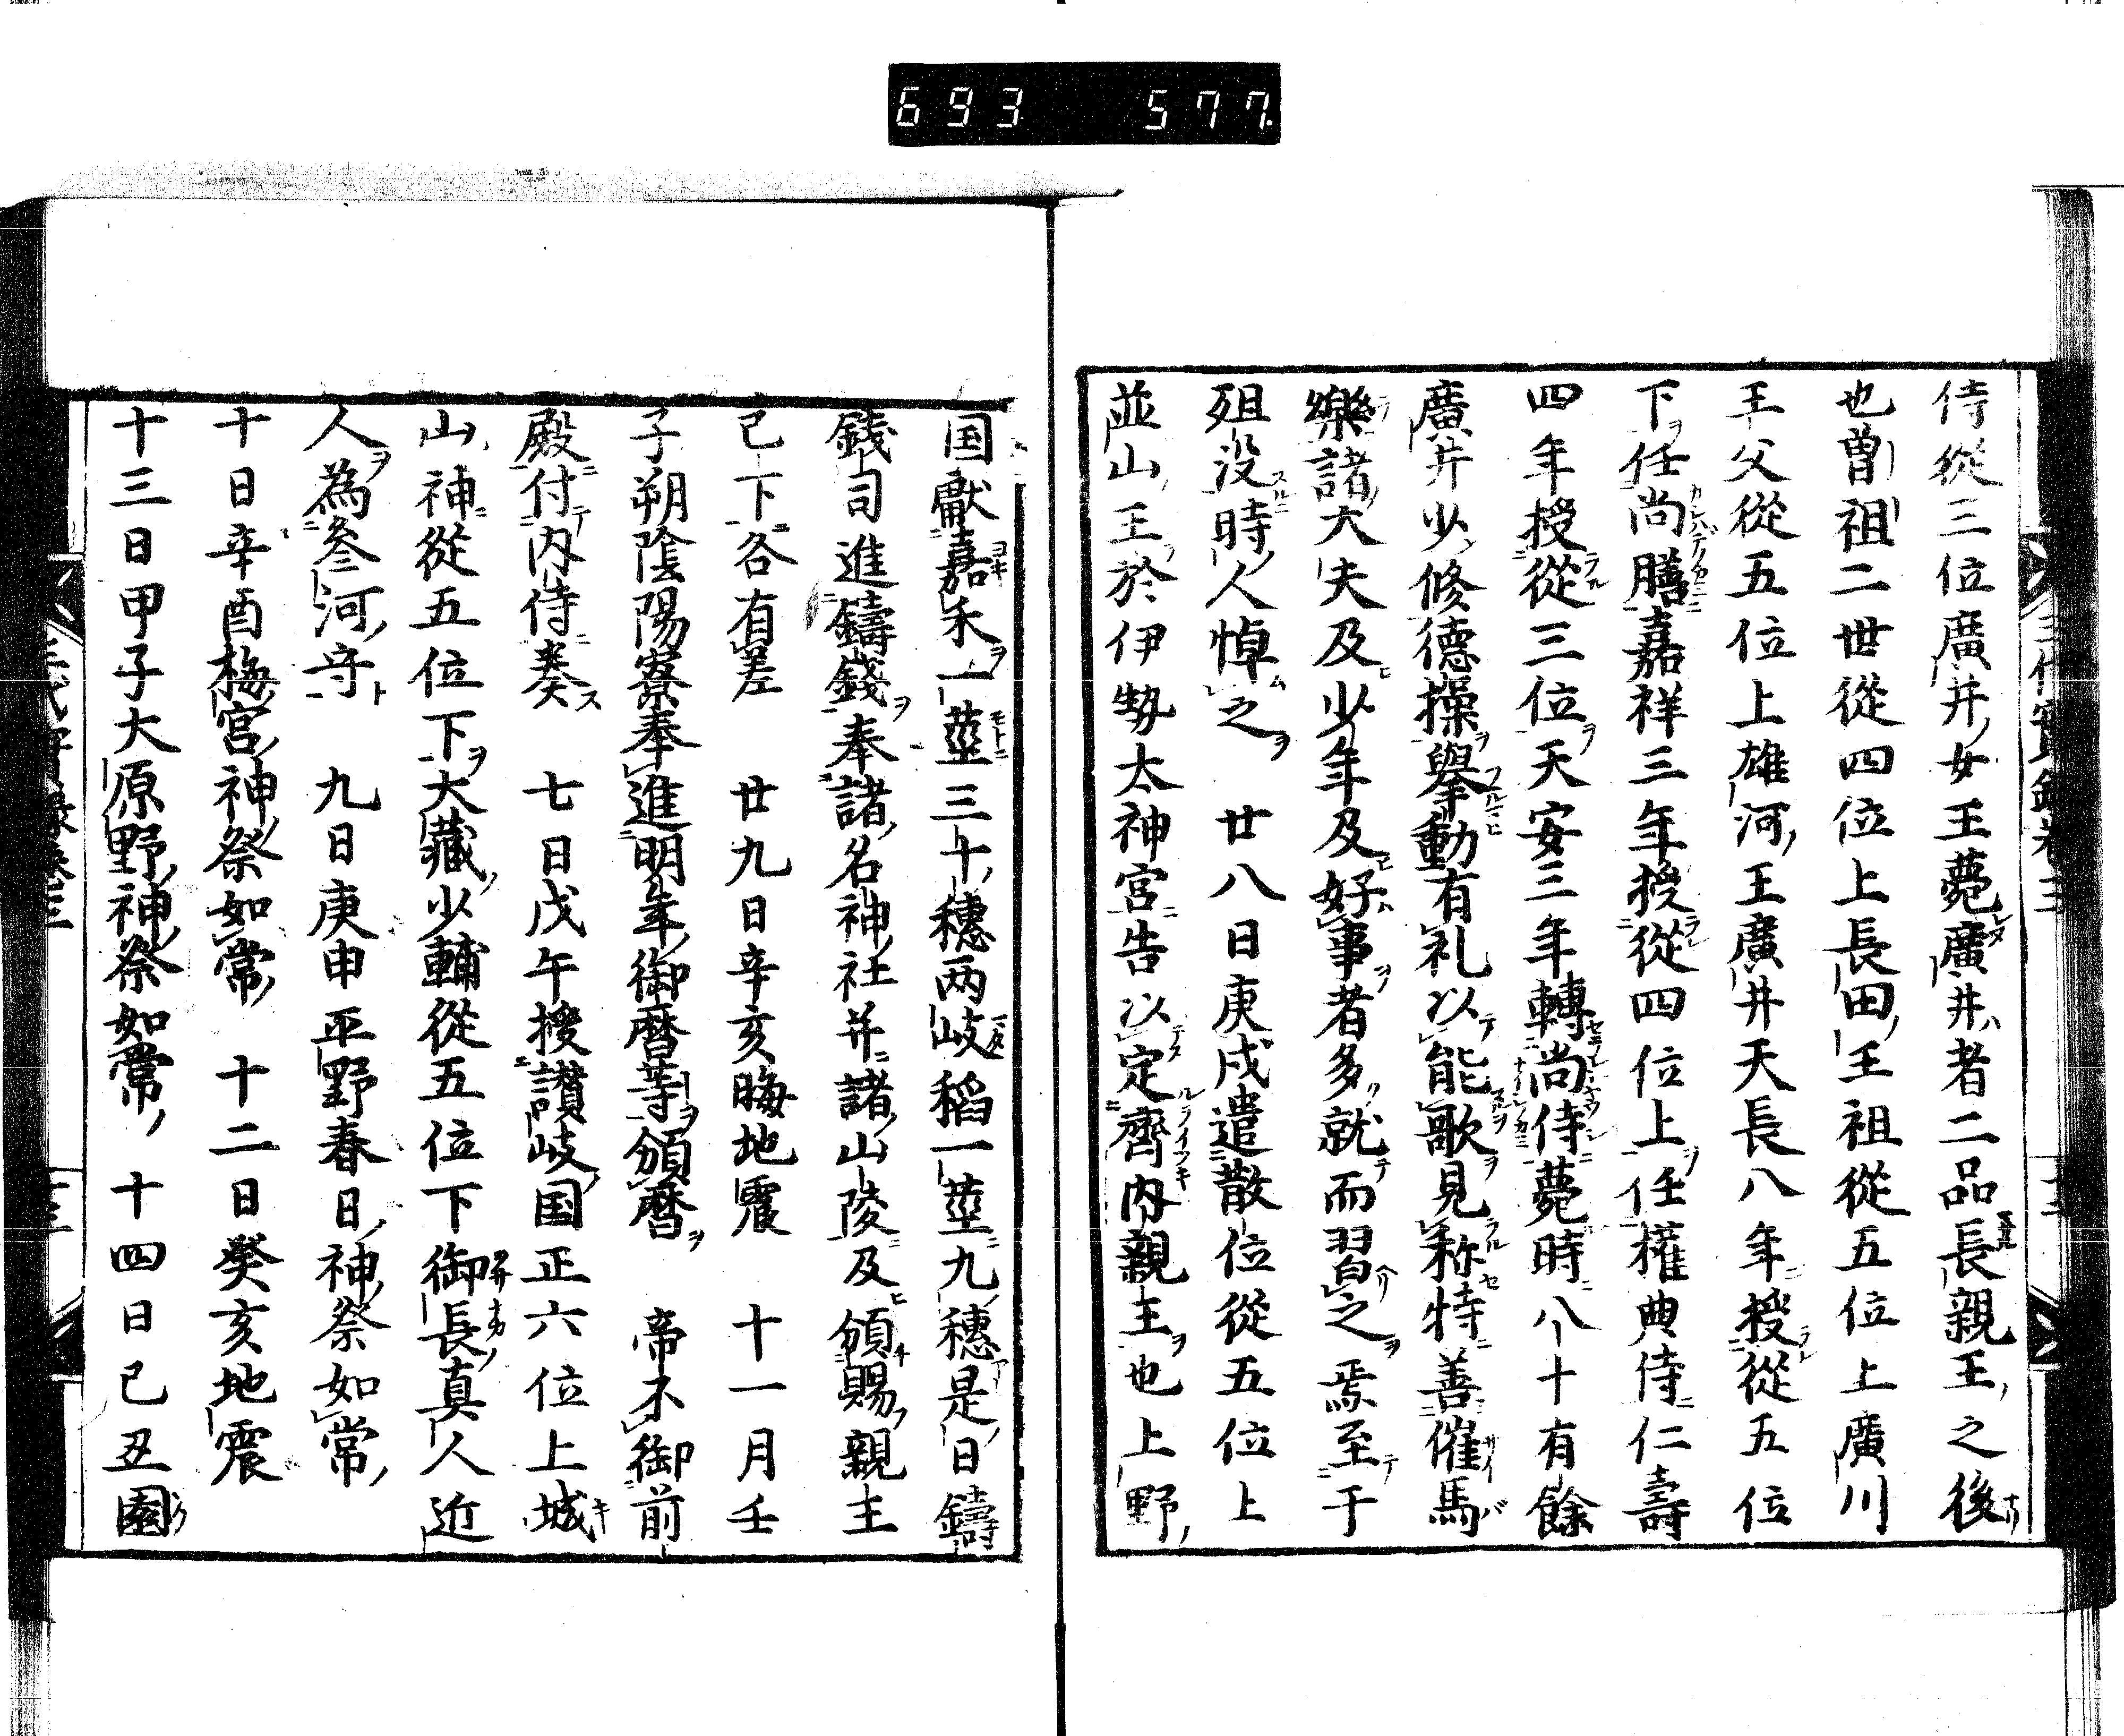 693 577
侍從三位廣井女王薨廣井者二品長親王之後
也曽祖二世從四位上長田王祖從五位上廣川
王父從五位上雄河王廣井天長八年授從五位
下任尚膳嘉祥三年授從四位上任權典侍仁壽
四年授從三位天安三年轉尚侍薨時八十有餘
廣井少修德操擧動有礼以能歌見称特善催馬
樂諸大夫及少年及好事者多就而習之焉至于
殂没時人悼之　廿八日庚戌遣散位從五位上
並山王於伊勢太神宮告以定齊内親主也上野
国獻嘉禾一莖三十穗两岐稻一莖九穗是日鑄
錢司進鑄錢奉諸名神社并諸山陵及頒賜親主
已下各有差　廿九日辛亥晦地震　十一月壬
子朔陰陽寮奉進明年御暦等頒暦　帝不御前
殿付内侍奏　七日戊午授讃岐国正六位上城
山神從五位下大藏少輔從五位下御長真人近
人為叅河守　九日庚申平野春日神祭如常
十日辛酉梅宮神祭如常　十二日癸亥地震
十三日甲子大原野神祭如常　十四日已丑園